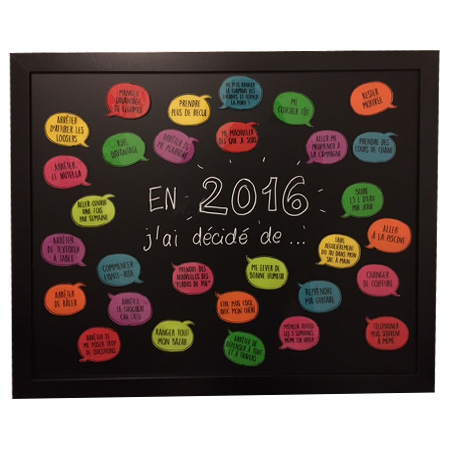 MANGER
DAVANTAGE
DE LÉGUMES
PRENDRE
PLUS DE RECUL
ME PLUS MANGER
LA CHAMBRE DES
ENFANTS ET FERMER
LA PORTE !
ME
COUCHER TÔT
RESTER
MOTIVÉE
ARRÊTER
D'ATTIRER LES
LOOSERS
RIRE
DAVANTAGE
ARRÊTER DE
ME PLAINDRE
ME MAQUILLER
DÈS QUE JE SORS
ALLER ME
PROMENER À
LA CAMPAGNE
PRENDRE DES
COURS DE CHANT
ARRÊTER
LE NUTELLA
EN 2016
j'ai décidé de ...
BOIRE
1,5 L D'EAU
PAR JOUR
ALLER COURIR
UNE FOIS
PAR SEMAINE
ALLER
À LA PISCINE
ARRÊTER
DE TEXTOTER
À TABLE
FAIRE
RÉGULIÈREMENT
DU TRI DANS MON
SAC À MAIN
COMMENCER
L'ANTI-RIDE
PRENDRE DES
NOUVELLES DES
"PERDUS DE VUE"
ME LEVER DE
BONNE HUMEUR
CHANGER
DE COIFFURE
ARRÊTER
DE RÂLER
ARRÊTER
LE CHOCOLAT
ÊTRE PLUS COOL
AVEC MON CHÉRI
REPRENDRE
MA GUITARE
ARRÊTER DE
ME POSER TROP
DE QUESTIONS
RANGER TOUT
MON BAZAR
ARRÊTER DE
DÉPENSER À TORT
ET À TRAVERS
TÉLÉPHONER
PLUS SOUVENT
À MÉMÉ